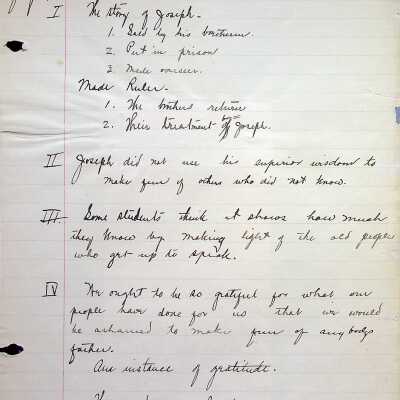 I The story of Joseph.
1. Sold by his brethren.
2. Put in prison
3. Made overseer.
Made Ruler.
1. The brothers return
2. Their treatment by Joseph.
II Joseph did not use his superior wisdom to
make fun of others who did not know.
III. Some students think it shows how much
they know by making light of the old people
who get up to speak.
IV We ought to be so grateful for what our
people have done for us that we would
be ashamed to make fun of anybodys
father.
An instance of gratitude.